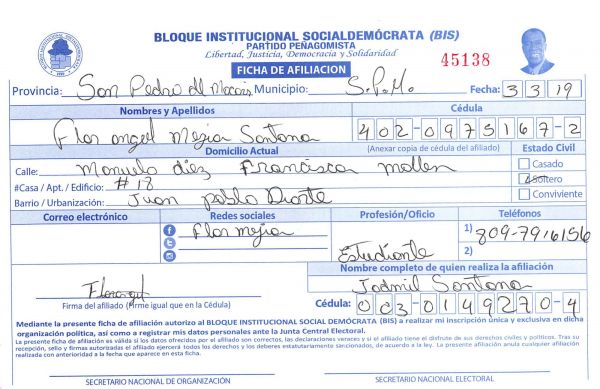 BLOQUE INSTITUCIONAL SOCIALDEMÓCRATA (BIS)
PARTIDO PEÑAGOMISTA
Libertad, Justicia, Democracia y Solidaridad
45138
FICHA DE AFILIACION
Provincia: San Pedro de Macoris Municipio: S.P.M. Fecha: 3 3 19
Nombres y Apellidos Cédula
Flor angel Mejia Santana 402-0975167-2
Domicilio Actual (Anexar copia de cédula del afiliado) Estado Civil
Calle: Manuela diez Francisca mollen Casado
#Casa / Apt. / Edificio: #18 Soltero
Barrio / Urbanización: Juan pablo Duarte Conviviente
Correo electrónico Redes sociales Profesión/Oficio Teléfonos
Flor mejia Estudiante 1) 809-7916156
2)
Nombre completo de quien realiza la afiliación
Santana
Firma del afiliado (Firme igual que en la Cédula) Cédula: 003-0149270-4
Mediante la presente ficha de afiliación autorizo al BLOQUE INSTITUCIONAL SOCIAL DEMÓCRATA (BIS) a realizar mi inscripción única y exclusiva en dicha
organización política, así como a registrar mis datos personales ante la Junta Central Electoral.
La presente ficha de afiliación es válida si los datos ofrecidos por el afiliado son correctos, las declaraciones veraces y si el afiliado tiene el disfrute de sus derechos civiles y políticos. Tras su
recepción, sello y firmas autorizadas el afiliado ejercerá todos los derechos y los deberes estatutariamente sancionados, de acuerdo a la ley. La presente afiliación anula cualquier afiliación
realizada con anterioridad a la fecha que aparece en esta ficha.
SECRETARIO NACIONAL DE ORGANIZACIÓN SECRETARIO NACIONAL ELECTORAL